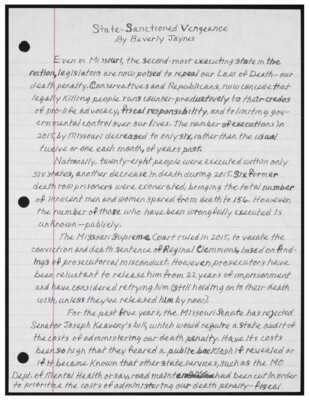 State-Sanctioned Vengeance
By Beverly Jaynes
Even in Missouri, the second-most executing state in the
nation, legislators are now poised to repeal our Law of Death-our
death penalty. Conservatives and Republicans, now concede that
legally killing people runs counter-productively to their credos
of pro-life advocacy, fiscal responsibility, and to limiting gov-
ernmental control over our lives. The number of executions in
2015, by Missouri decreased to only six, rather than the usual
twelve or one each month, of years past.
Nationally, twenty-eight people were executed within only
six states, another decrease in death during 2015. Six former
death row prisoners were exonerated, bringing the total number
of innocent men and women spared from death to 156. However,
the number of those who have been wrongfully executed is
unknown-publicly.
The Missouri Supreme Court ruled in 2015, to vacate the
conviction and death sentence of Reginal Clemmons, based on find-
ings of prosecutorial misconduct. However, prosecutors have
been reluctant to release him from 22 years of imprisonment
and have considered retrying him (still holding on to their death
wish, unless they've released him by now).
For the past five years, the Missouri Senate has rejected
Senator Joseph Keaveny's bill, which would require a state audit of
the costs of administering our death penalty. Have its costs
been so high that they feared a public backlash if revealed or
if it became known that other state services, such as the MO.
Dept. of Mental Health or say, road had been cut in order
to prioritize the costs of administering our death penalty-fiscal